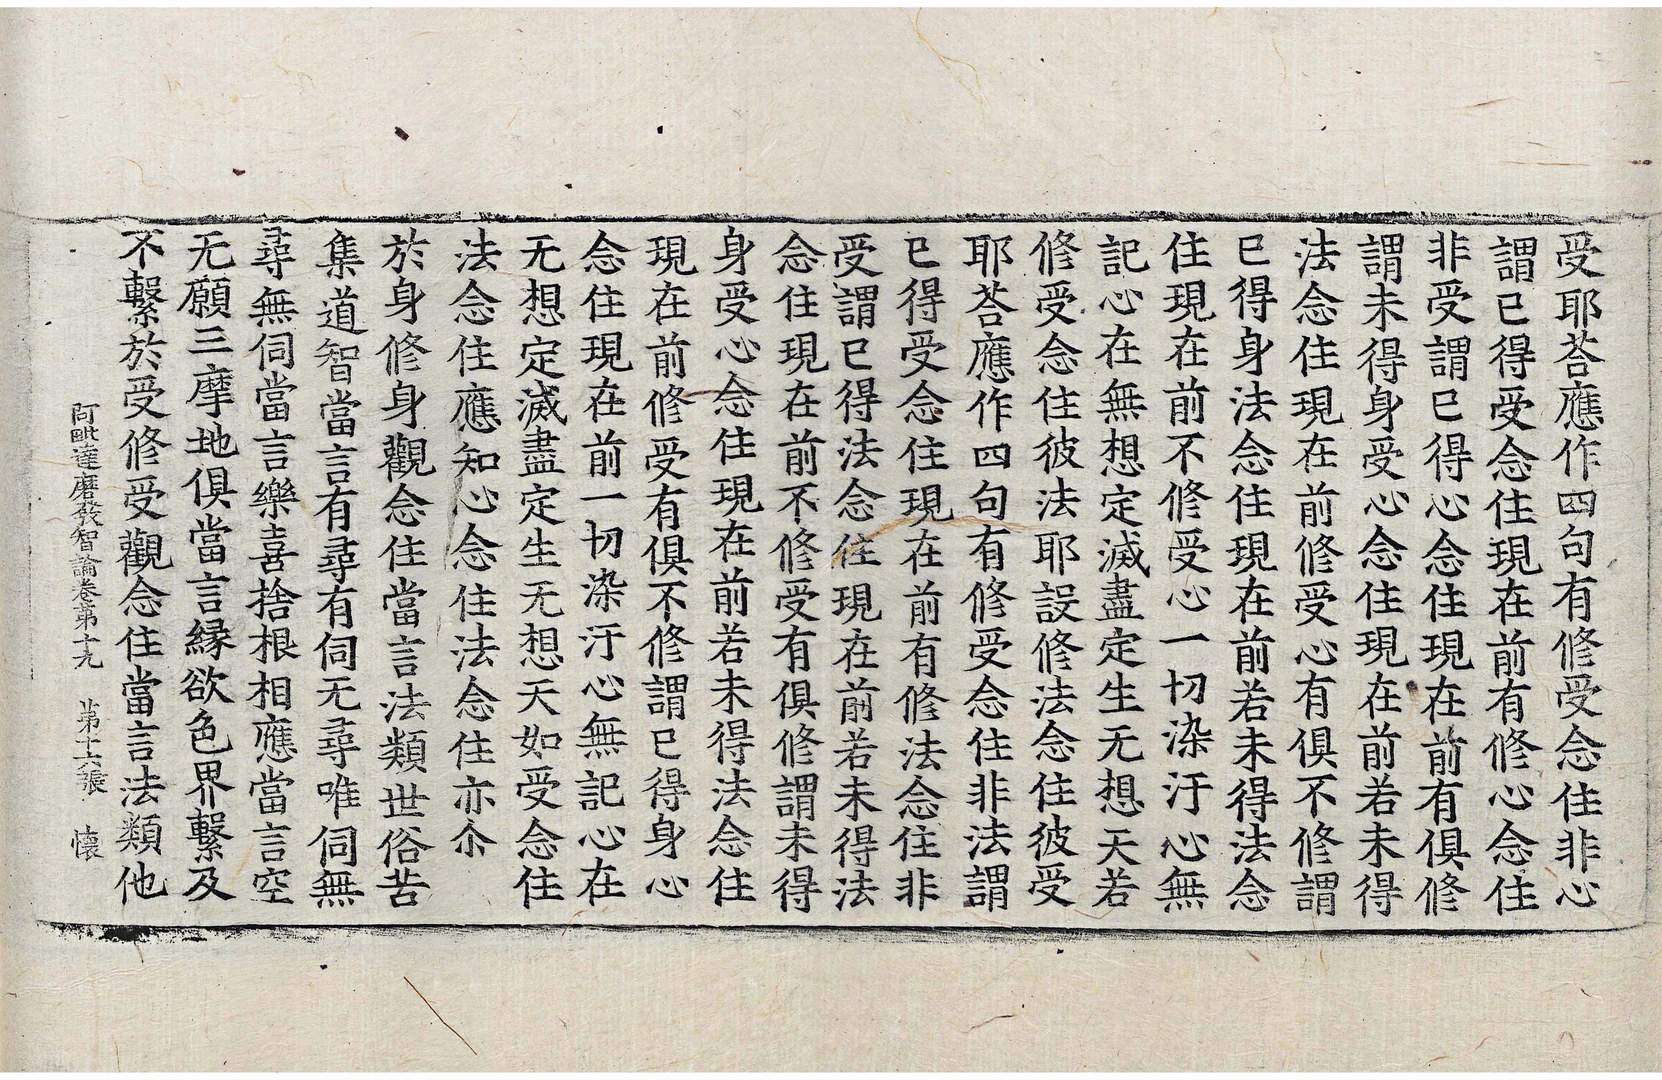 受耶荅應作四句有修受念住非心
謂已得受念住現在前有修心念住
非受謂已得心念住現在前有俱修
謂未得身受心念住現在前若未得
法念住現在前修受心有俱不修謂
已得身法念住現在前若未得法念
住現在前不修受心一切染汙心無
記心在無想定滅盡定生无想天若
修受念住彼法耶設修法念住彼受
耶荅應作四句有修受念住非法謂
已得受念住現在前有修法念住非
受謂已得法念住現在前若未得法
念住現在前不修受有俱修謂未得
身受心念住現在前若未得法念住
現在前修受有俱不修謂已得身心
念住現在前一切染汙心無記心在
无想定滅盡定生无想天如受念住
法念住應知心念住法念住亦尒
於身修身觀念住當言法類世俗苦
集道智當言有尋有伺无尋唯伺無
尋無伺當言樂喜捨根相應當言空
无願三摩地俱當言緣欲色界繫及
不繫於受修受觀念住當言法類他
阿毗達磨發智論卷第十九　第十六張　懷